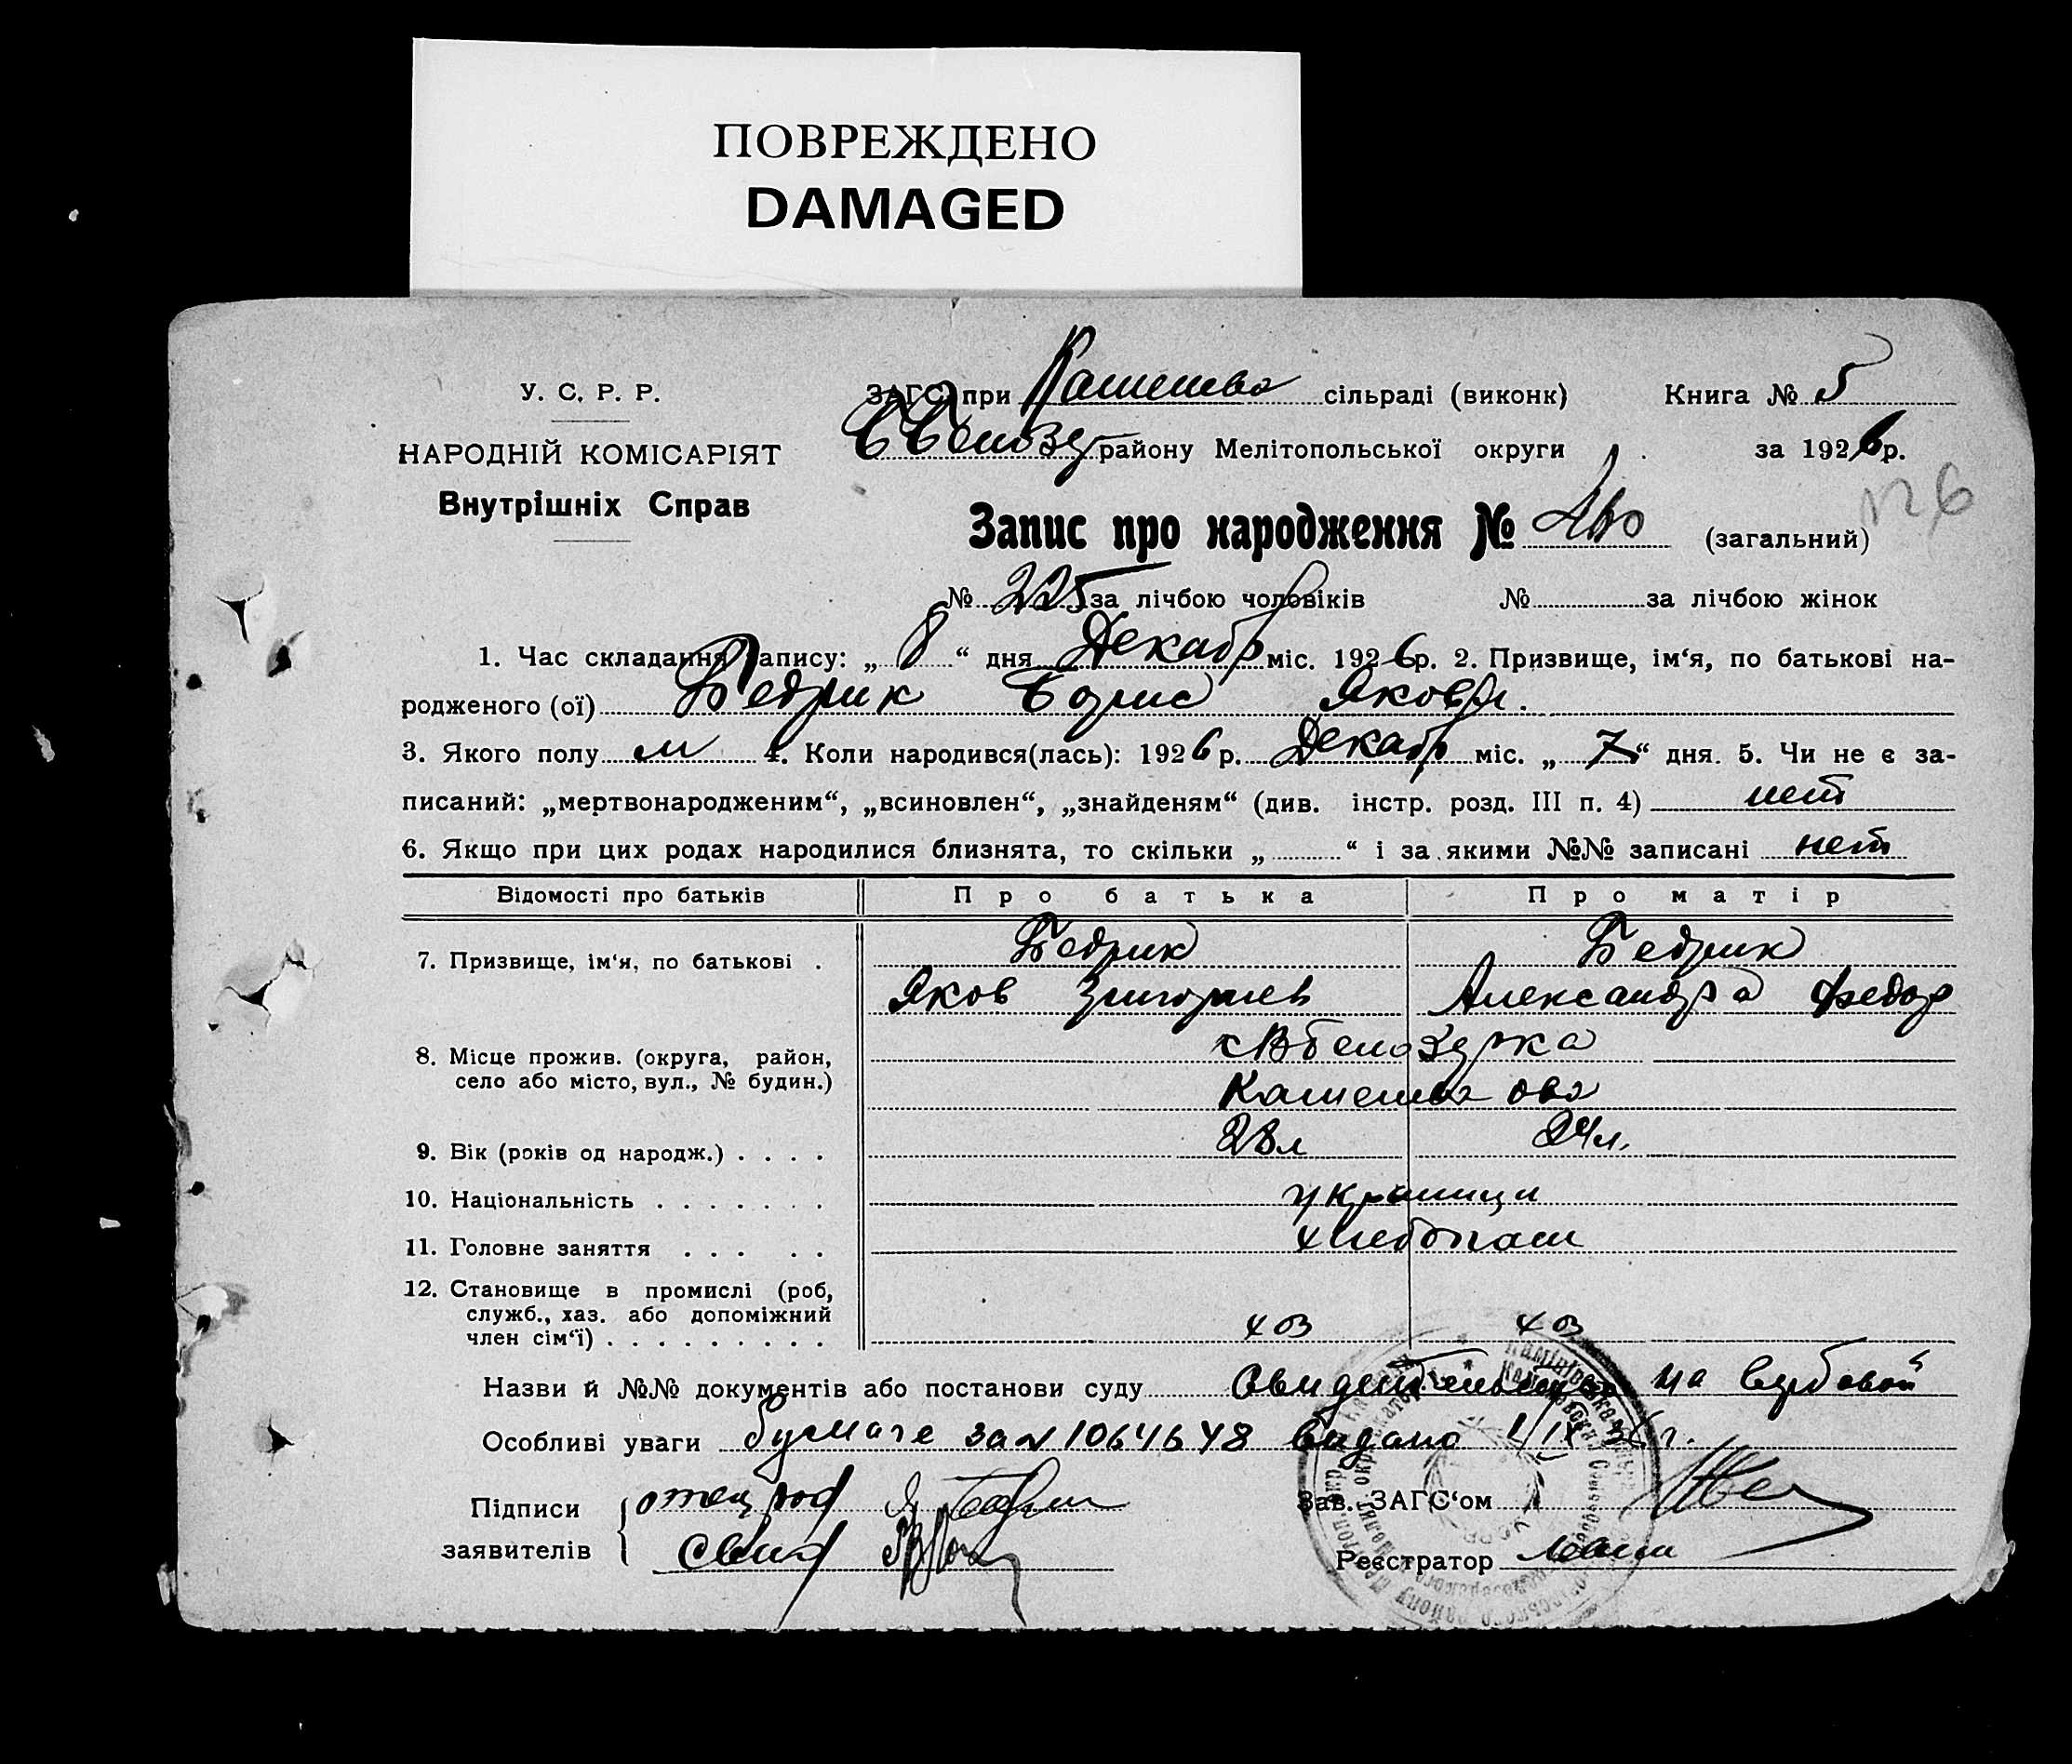 ПОВРЕЖДЕНО
DAMAGED
У. С. Р. Р.
НАРОДНІЙ КОМІСАРІЯТ
Внутрішніх Справ
ЗАГС при сільраді (виконк) Книга № 5
району Мелітопольської округи за 1926 р.
№ 6
Запис про народження № (загальний)
№ 225 за лічбою чоловіків № за лічбою жінок
1. Час складання запису: „ 8 “ дня Декабр міс. 1926 р. 2. Призвище, ім‘я, по батькові на-
родженого (ої) Бедрик Борис Яковл.
3. Якого полу м 4. Коли народився(лась): 1926 р. Декабр міс. „ 7 “ дня. 5. Чи не є за-
писаний: „мертвонародженим“, „всиновлен“, „знайденям“ (див. інстр. розд. III п. 4) нет
6. Якщо при цих родах народилися близнята, то скільки „ “ і за якими №№ записані нет
Відомості про батьків Про батька Про матір
7. Призвище, ім‘я, по батькові . Бедрик Бедрик
Яков Григориев Александра Федор
8. Місце прожив. (округа, район, село або місто, вул., № будин.) с Вбелозерка
9. Вік (років од народж.) . . . . 28 л 24 л.
10. Національність . . . . . . . украинци
11. Головне заняття . . . . . хлебопаш
12. Становище в промислі (роб, служб., хаз. або допоміжний член сім‘ї) . . . . . . . . . хоз хоз
Назви й №№ документів або постанови суду Свидетельство на гербовой
Особливі уваги бумаге за № 1064648 видано 1/IX 36 г.
Підписи заявителів отец
Зав. ЗАГС‘ом
Реєстратор